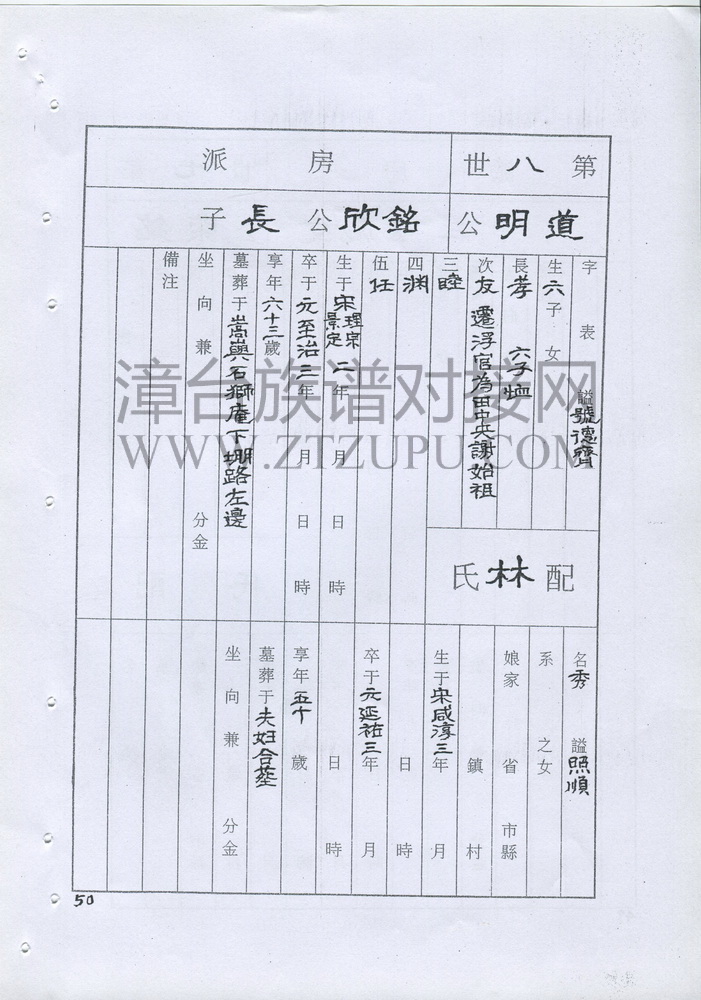 第八世
房派
道明公
銘欣公長子
字表 諡號德齊
生六子 女
長孝 六子恤
次友 遷浮宮為田中央謝始祖
三睦
四渊
伍任
生于宋理宗景定二年 月 日 時
卒于元至治三年 月 日 時
享年六十三歲
墓葬于嵩嶼石獅庵下堋路左邊
坐向兼 分金
備注
配林氏
名秀 諡照順
系 之女
娘家 省 市縣
鎮 村
生于宋咸淳三年 月
日 時
卒于元延祐三年 月
日 時
享年五十歲
墓葬于夫妇合莹
坐向兼 分金
50
漳台族谱对接网
WWW.ZTZUPU.COM